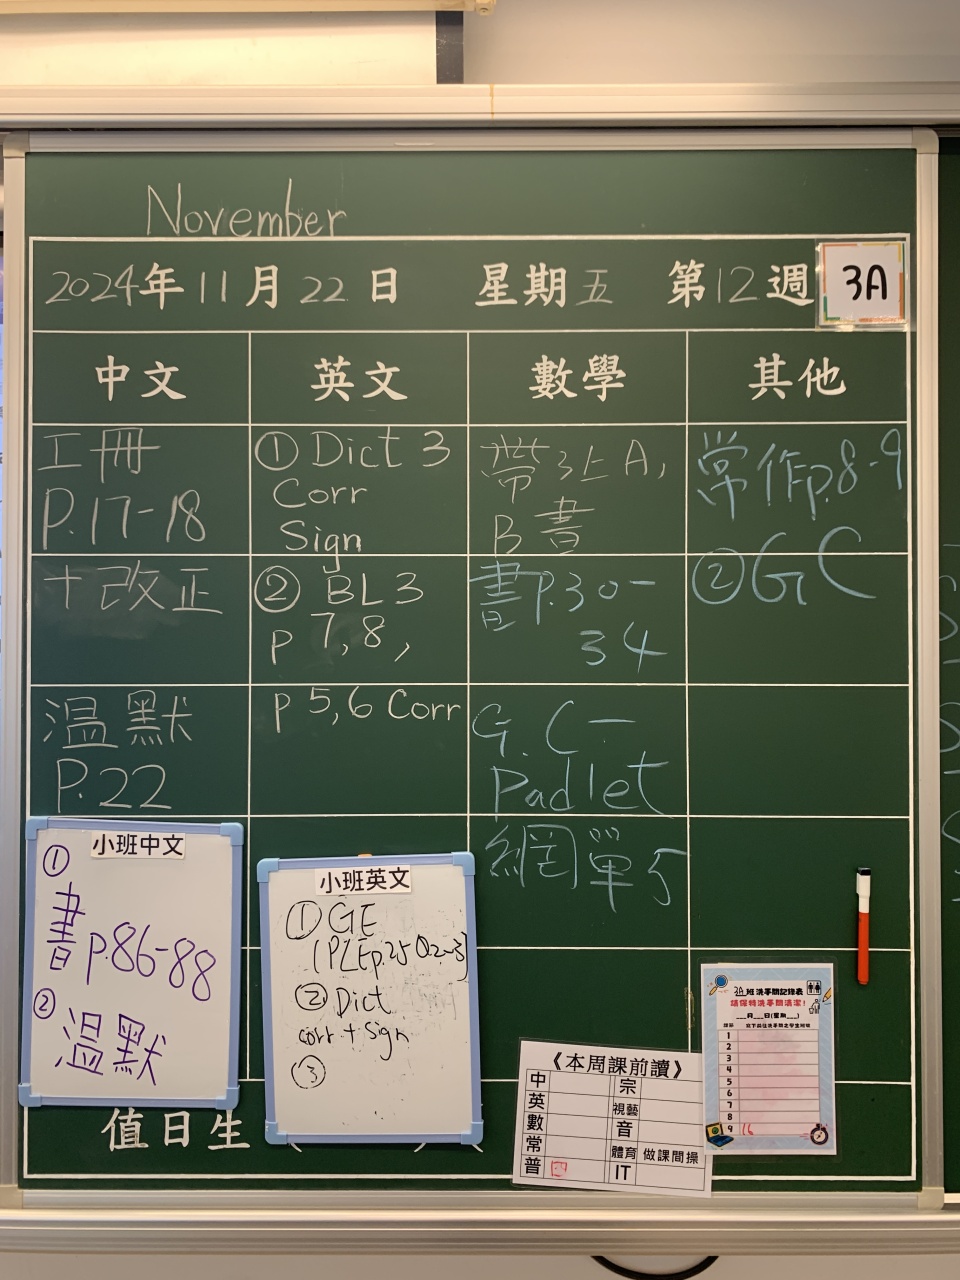 November
2024年11月22日 星期五 第12週 3A
中文 英文 數學 其他
工冊
P.17-18
十改正
溫默
P.22
① Dict 3
Corr
Sign
② BL 3
p 7,8,
p 5,6 Corr
帶3上A,
B書
書p.30-
34
G.C-
Padlet
網單5
常作p.8-9
②GC
小班中文
①
書p.86-88
②
溫默
小班英文
①GE
(PLEp.25 Q.2-3)
②Dict
corr + sign
③
值日生
《本周課前讀》
中 宗
英 視藝
數 音
常 體育 做課間操
普 IT
3A班洗手間記錄表
請保持洗手間清潔!
___月___日(星期___)
1
2
3
4
5
6
7
8
9 16